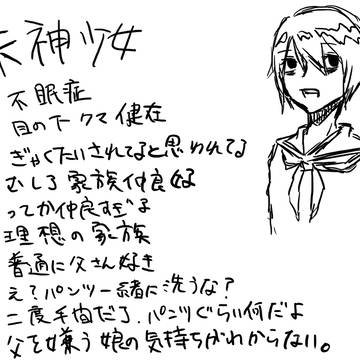 神少女
不眠症
目の下クマ健在
ぎゃくたいされてると思われてる
むしろ家族仲良好
ってか仲良すぎる
理想の家族
普通に父さん好き
え?パンツ一緒に洗うな?
二度手間だろ、パンツぐらい何だよ
父を嫌う娘の気持ちがわからない。